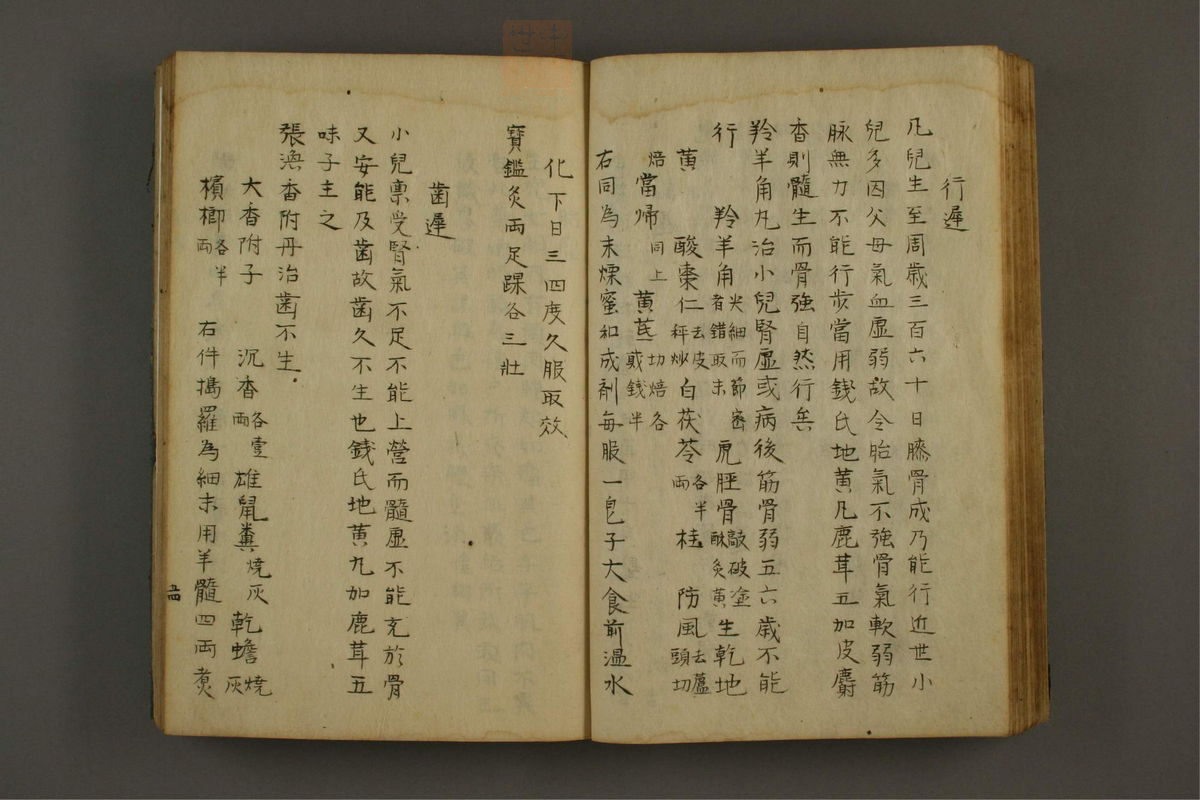 行遲
凡兒生至周歲三百六十日膝骨成乃能行近世小
兒多因父母氣血虛弱故令胎氣不強骨氣軟弱筋
脉無力不能行步當用錢氏地黃凡鹿茸五加皮麝
香則髓生而骨強自然行矣
羚羊角丸治小兒腎虛或病後筋骨弱五六歲不能
行　羚羊角尖細而節密者錯取末　虎脛骨敲破塗酥灸黃生乾地
黃　酸棗仁去皮秤炒白茯苓各半兩　桂　防風去蘆頭切
焙當歸同上　黃芪切焙各貳錢半
右同為末煉蜜和成劑每服一皂子大食前溫水
化下日三四度久服取效
寶鑑灸兩足踝各三壯
齒遲
小兒稟受腎氣不足不能上營而髓虛不能充於骨
又安能及齒故齒久不生也錢氏地黃九加鹿茸五
味子主之
張渙香附丹治齒不生
大香附子　沉香各壹兩　雄鼠糞燒灰　乾蟾燒灰
檳榔各半兩　右件擣羅為細末用羊髓四兩煮